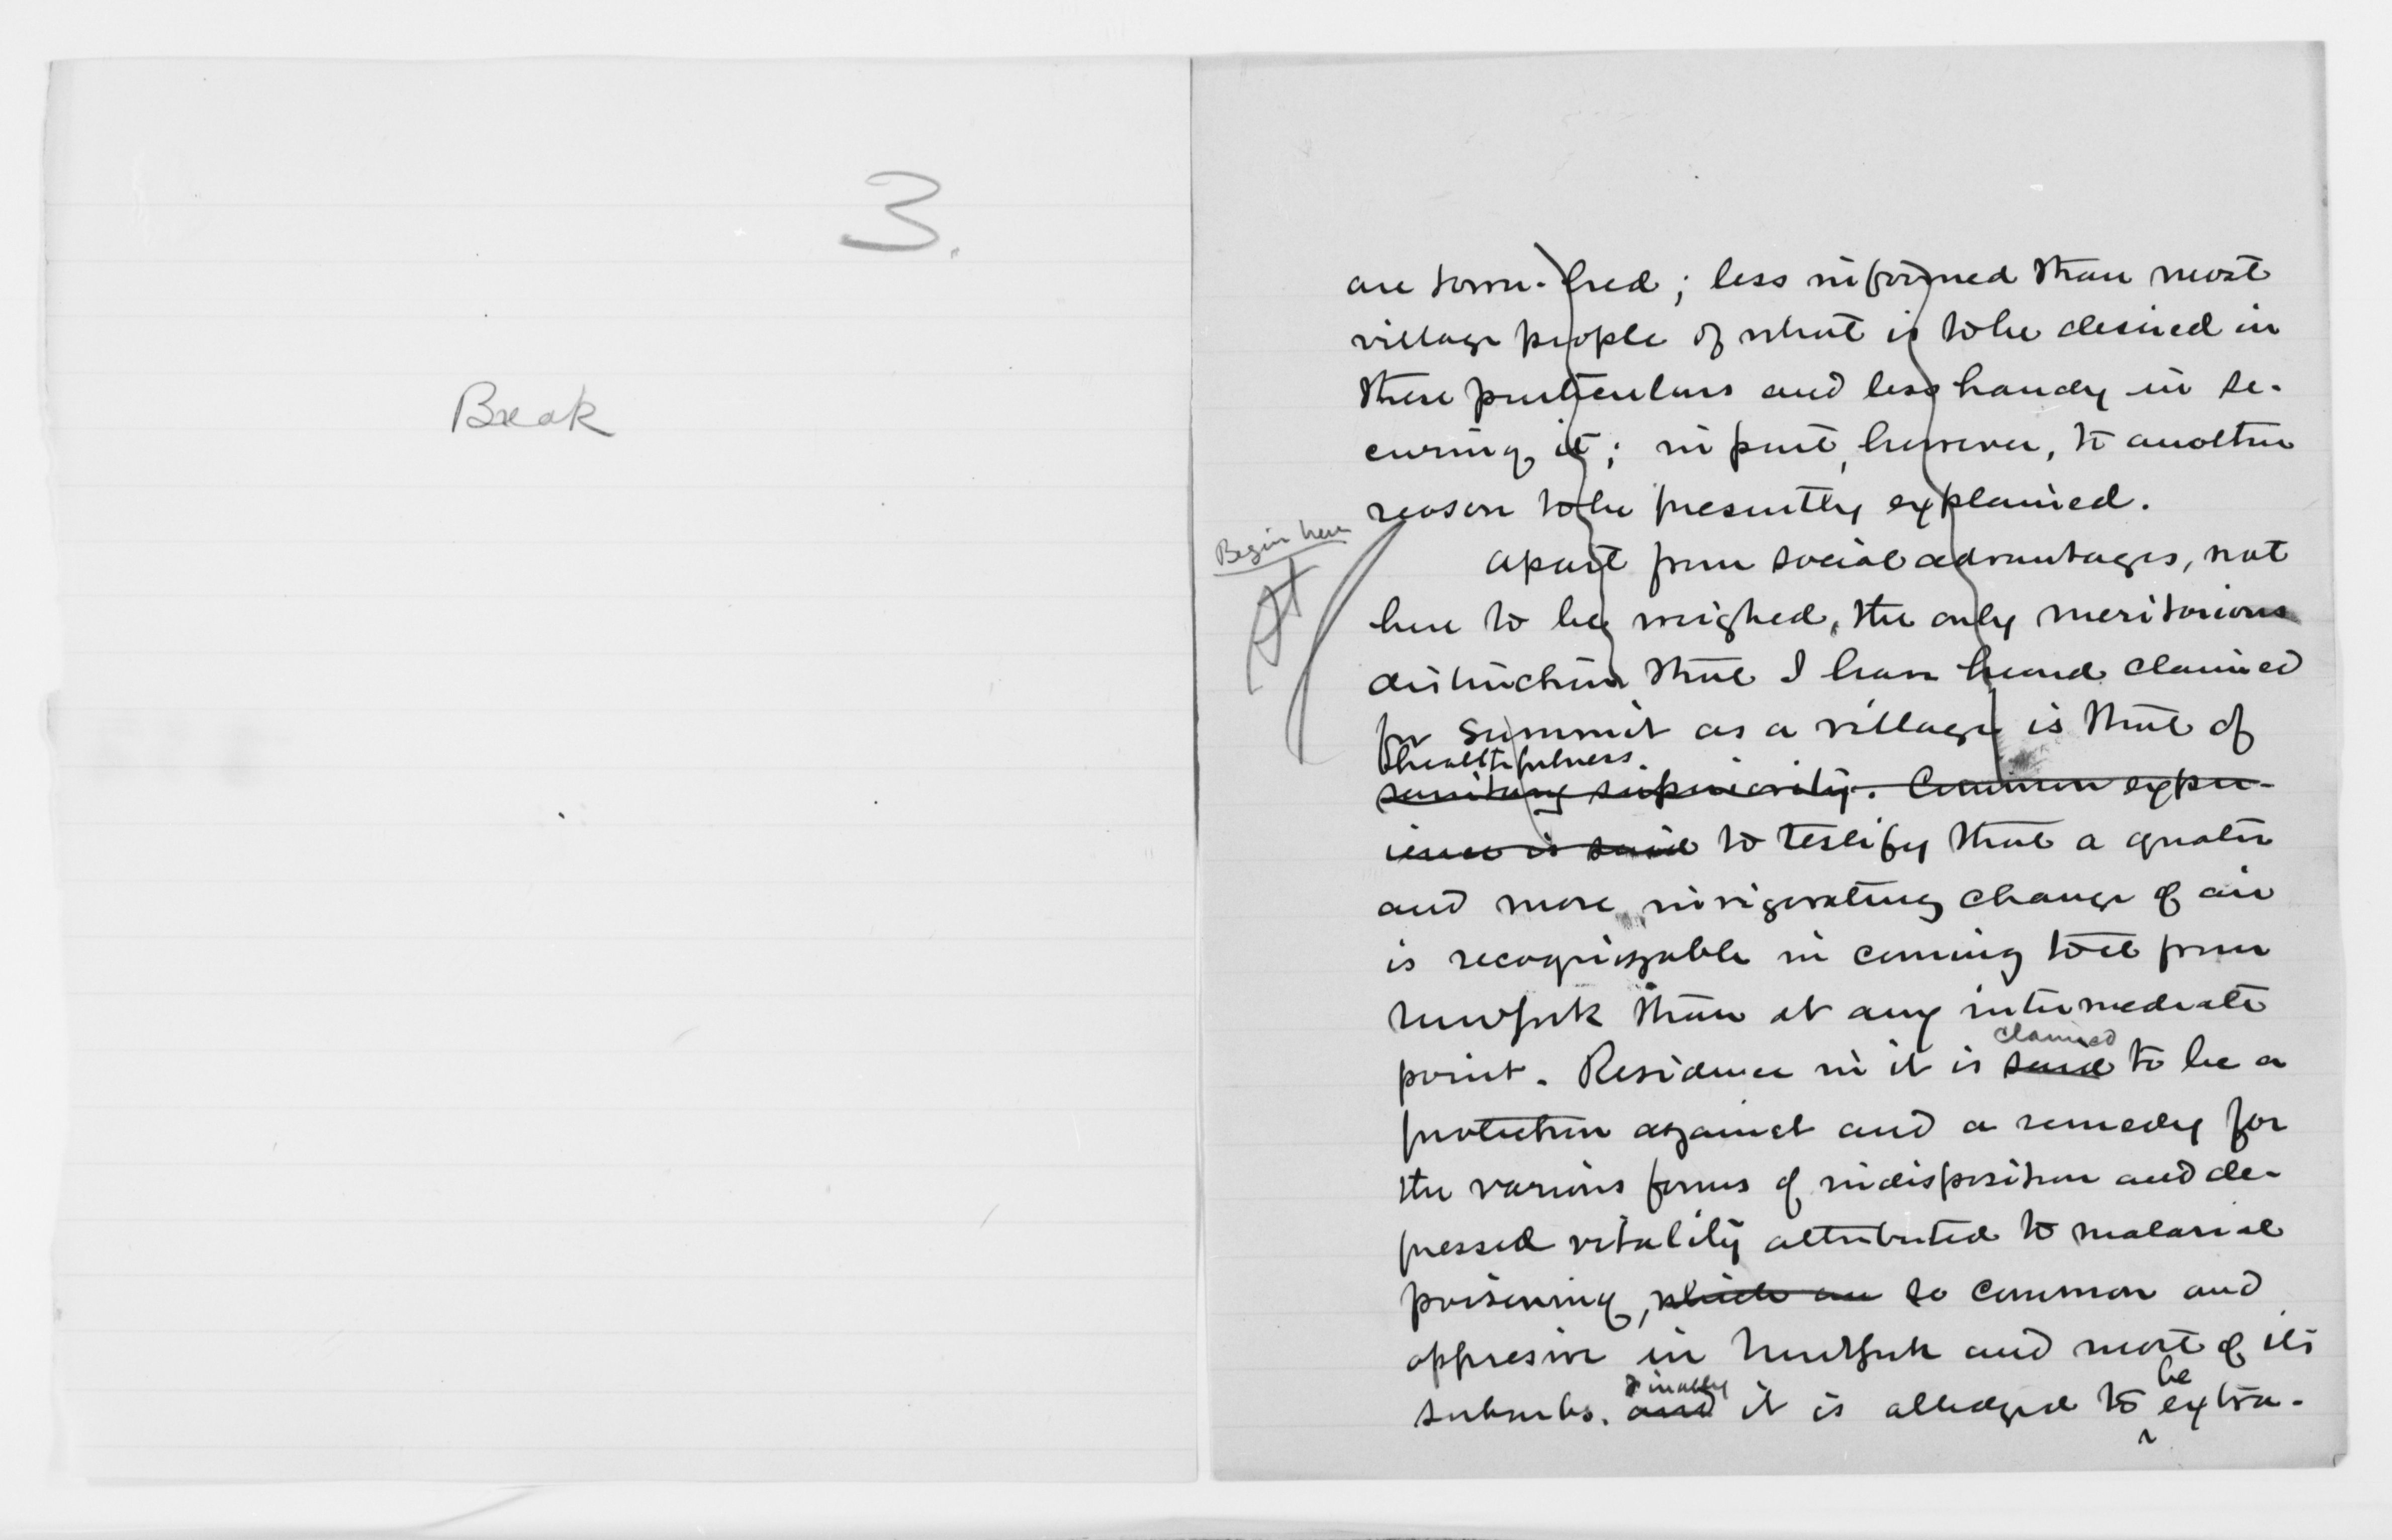 3.
Break
are town-bred; less informed than most
village people of what is to be desired in
these particulars and less handy in se-
curing it; in part, however, to another
reason to be presently explained.
Begin here
Apart from social advantages, not
here to be weighed, the only meritorious
distinction that I have heard claimed
for Summit as a village is that of
healthfulness.
sanitary superiority. Common exper-
ience is said to testify that a greater
and more invigorating change of air
is recognizable in coming to it from
New York than at any intermediate
claimed
point. Residence in it is said to be a
protection against and a remedy for
the various forms of indisposition and de-
pressed vitality attributed to malarial
poisoning, which are so common and
oppresive in New York and most of its
finally be
suburbs. and it is alledged to extra-